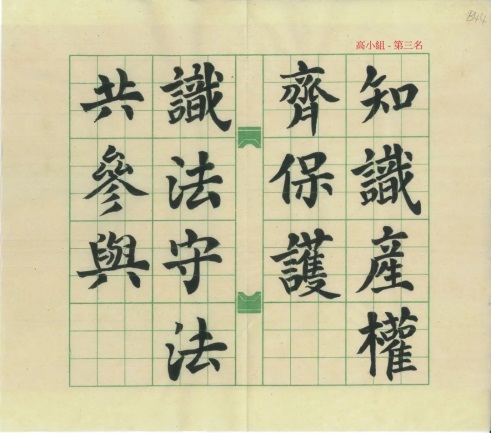 高小組 - 第三名
知識產權
齊保護
識法守法
共參與